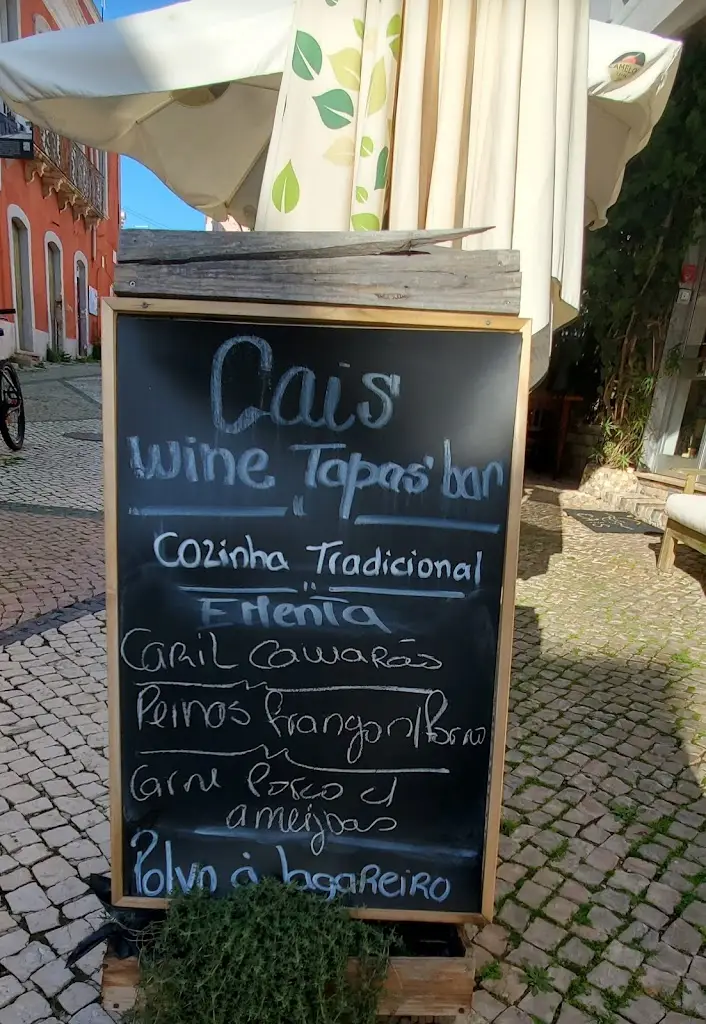 Cais
Wine Tapas bar
Cozinha Tradicional
Ementa
Caril Camarão
Pernas frango n/forno
Carne Porco c/
ameijoas
Polvo à lagareiro